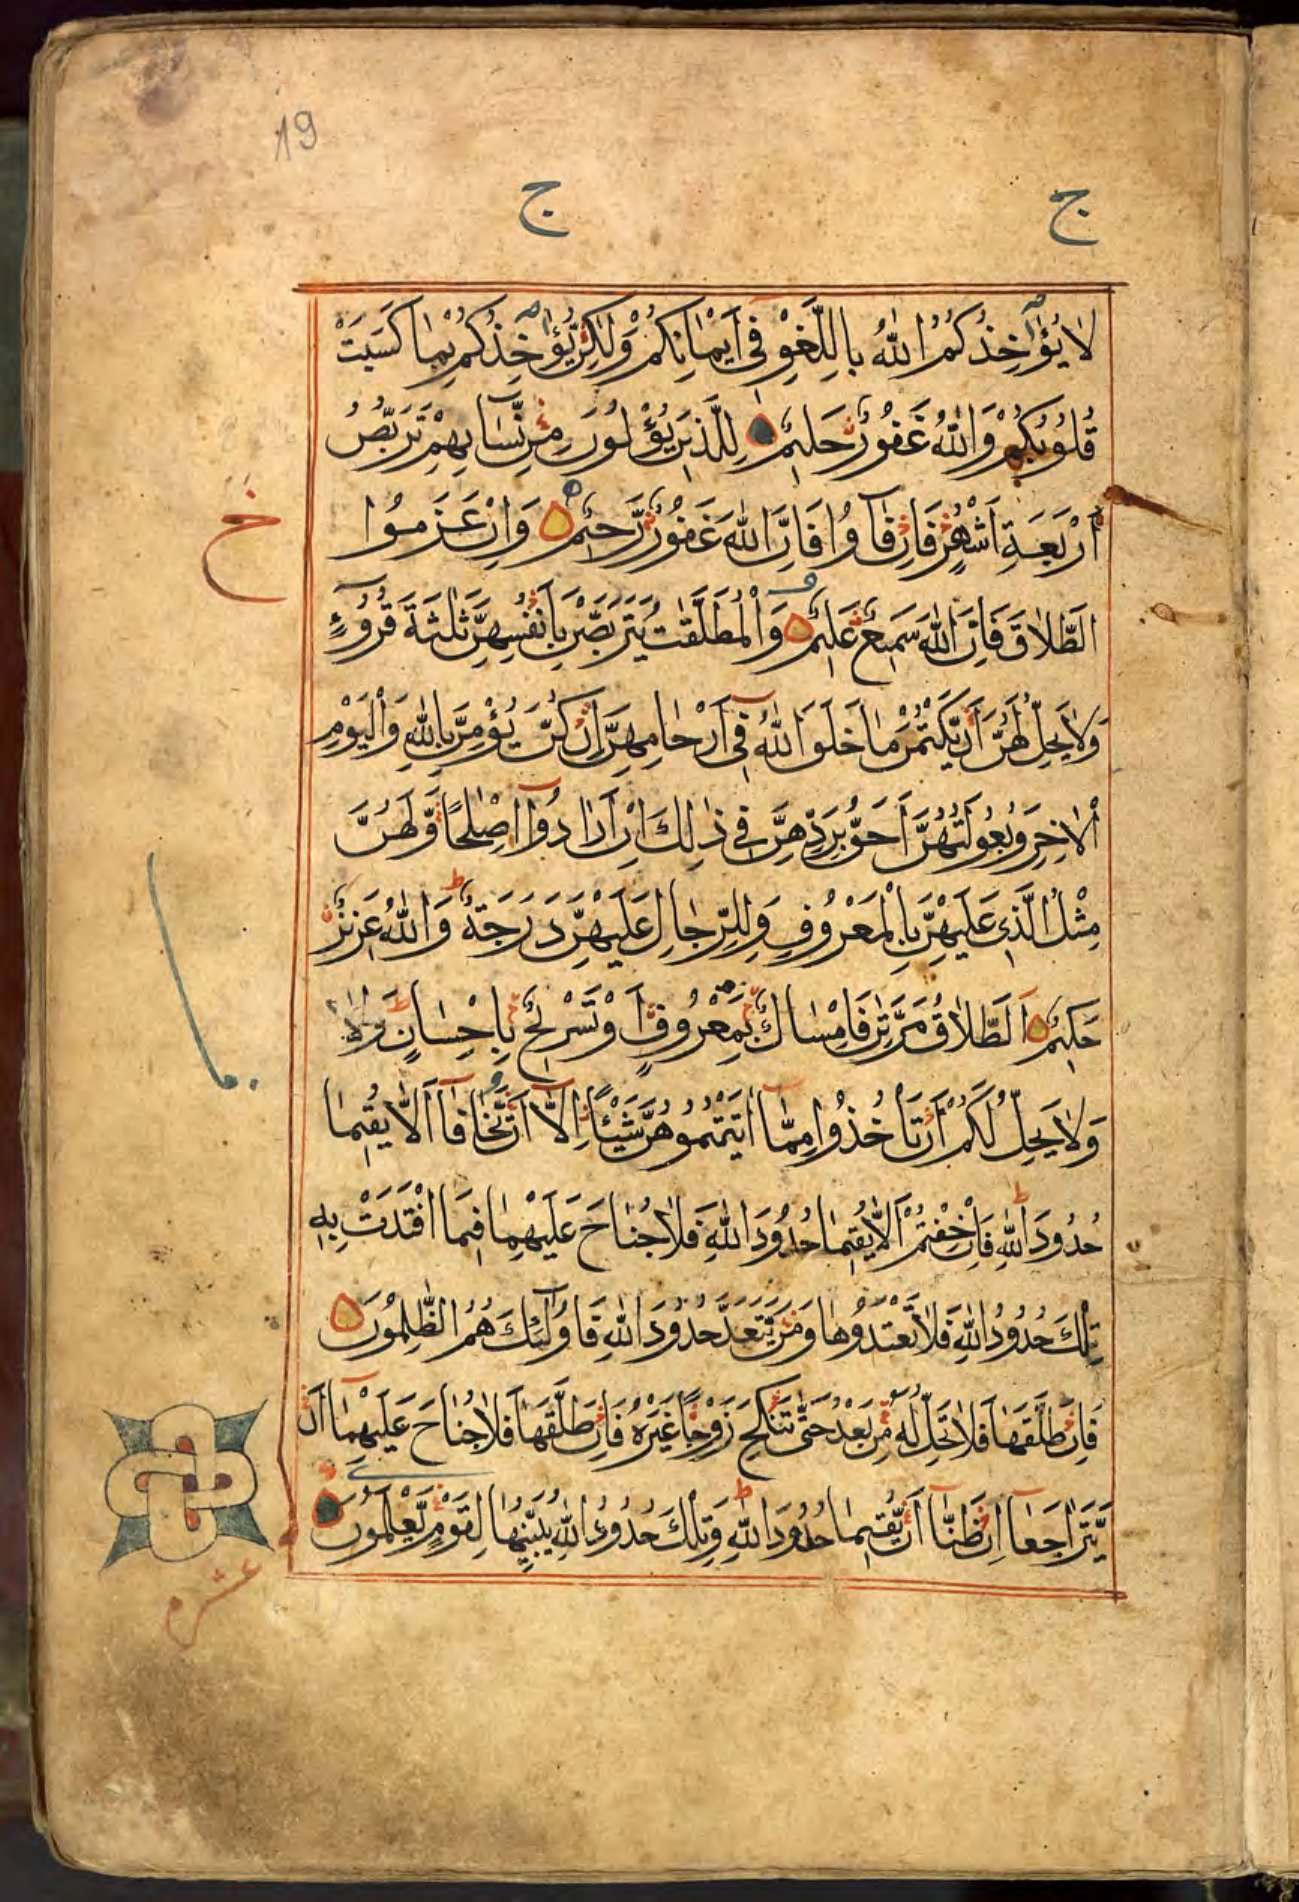 19
ج ج
لَا يُؤَاخِذُكُمُ اللّٰهُ بِاللَّغْوِ فِى اَيْمَانِكُمْ وَلٰكِنْ يُؤَاخِذُكُمْ بِمَا كَسَبَتْ
قُلُوبُكُمْ وَاللّٰهُ غَفُورٌ حَلِيمٌ لِلَّذِينَ يُؤْلُونَ مِنْ نِّسَائِهِمْ تَرَبُّصُ
اَرْبَعَةِ اَشْهُرٍ فَاِنْ فَآؤُا فَاِنَّ اللّٰهَ غَفُورٌ رَّحِيمٌ وَاِنْ عَزَمُوا
خ
الطَّلَاقَ فَاِنَّ اللّٰهَ سَمِيعٌ عَلِيمٌ وَالْمُطَلَّقٰتُ يَتَرَبَّصْنَ بِاَنْفُسِهِنَّ ثَلٰثَةَ قُرُوءٍ
وَلَا يَحِلُّ لَهُنَّ اَنْ يَّكْتُمْنَ مَا خَلَقَ اللّٰهُ فِى اَرْحَامِهِنَّ اِنْ كُنَّ يُؤْمِنَّ بِاللّٰهِ وَالْيَوْمِ
الْاٰخِرِ وَبُعُولَتُهُنَّ اَحَقُّ بِرَدِّهِنَّ فِى ذٰلِكَ اِنْ اَرَادُوا اِصْلٰحًا وَّلَهُنَّ
مِثْلُ الَّذِى عَلَيْهِنَّ بِالْمَعْرُوفِ وَلِلرِّجَالِ عَلَيْهِنَّ دَرَجَةٌ وَاللّٰهُ عَزِيزٌ
حَكِيمٌ اَلطَّلَاقُ مَرَّتٰنِ فَاِمْسَاكٌ بِمَعْرُوفٍ اَوْ تَسْرِيحٌ بِاِحْسَانٍ وَلَا
وَلَا يَحِلُّ لَكُمْ اَنْ تَاْخُذُوا مِمَّا اٰتَيْتُمُوهُنَّ شَيْئًا اِلَّا اَنْ يَّخَافَا اَلَّا يُقِيمَا
حُدُودَ اللّٰهِ فَاِنْ خِفْتُمْ اَلَّا يُقِيمَا حُدُودَ اللّٰهِ فَلَا جُنَاحَ عَلَيْهِمَا فِيمَا افْتَدَتْ بِهِ
تِلْكَ حُدُودُ اللّٰهِ فَلَا تَعْتَدُوهَا وَمَنْ يَّتَعَدَّ حُدُودَ اللّٰهِ فَاُولٰٓئِكَ هُمُ الظّٰلِمُونَ
فَاِنْ طَلَّقَهَا فَلَا تَحِلُّ لَهُ مِنْ بَعْدُ حَتّٰى تَنْكِحَ زَوْجًا غَيْرَهُ فَاِنْ طَلَّقَهَا فَلَا جُنَاحَ عَلَيْهِمَا اَنْ
يَّتَرَاجَعَا اِنْ ظَنَّا اَنْ يُّقِيمَا حُدُودَ اللّٰهِ وَتِلْكَ حُدُودُ اللّٰهِ يُبَيِّنُهَا لِقَوْمٍ يَّعْلَمُونَ
عشرم